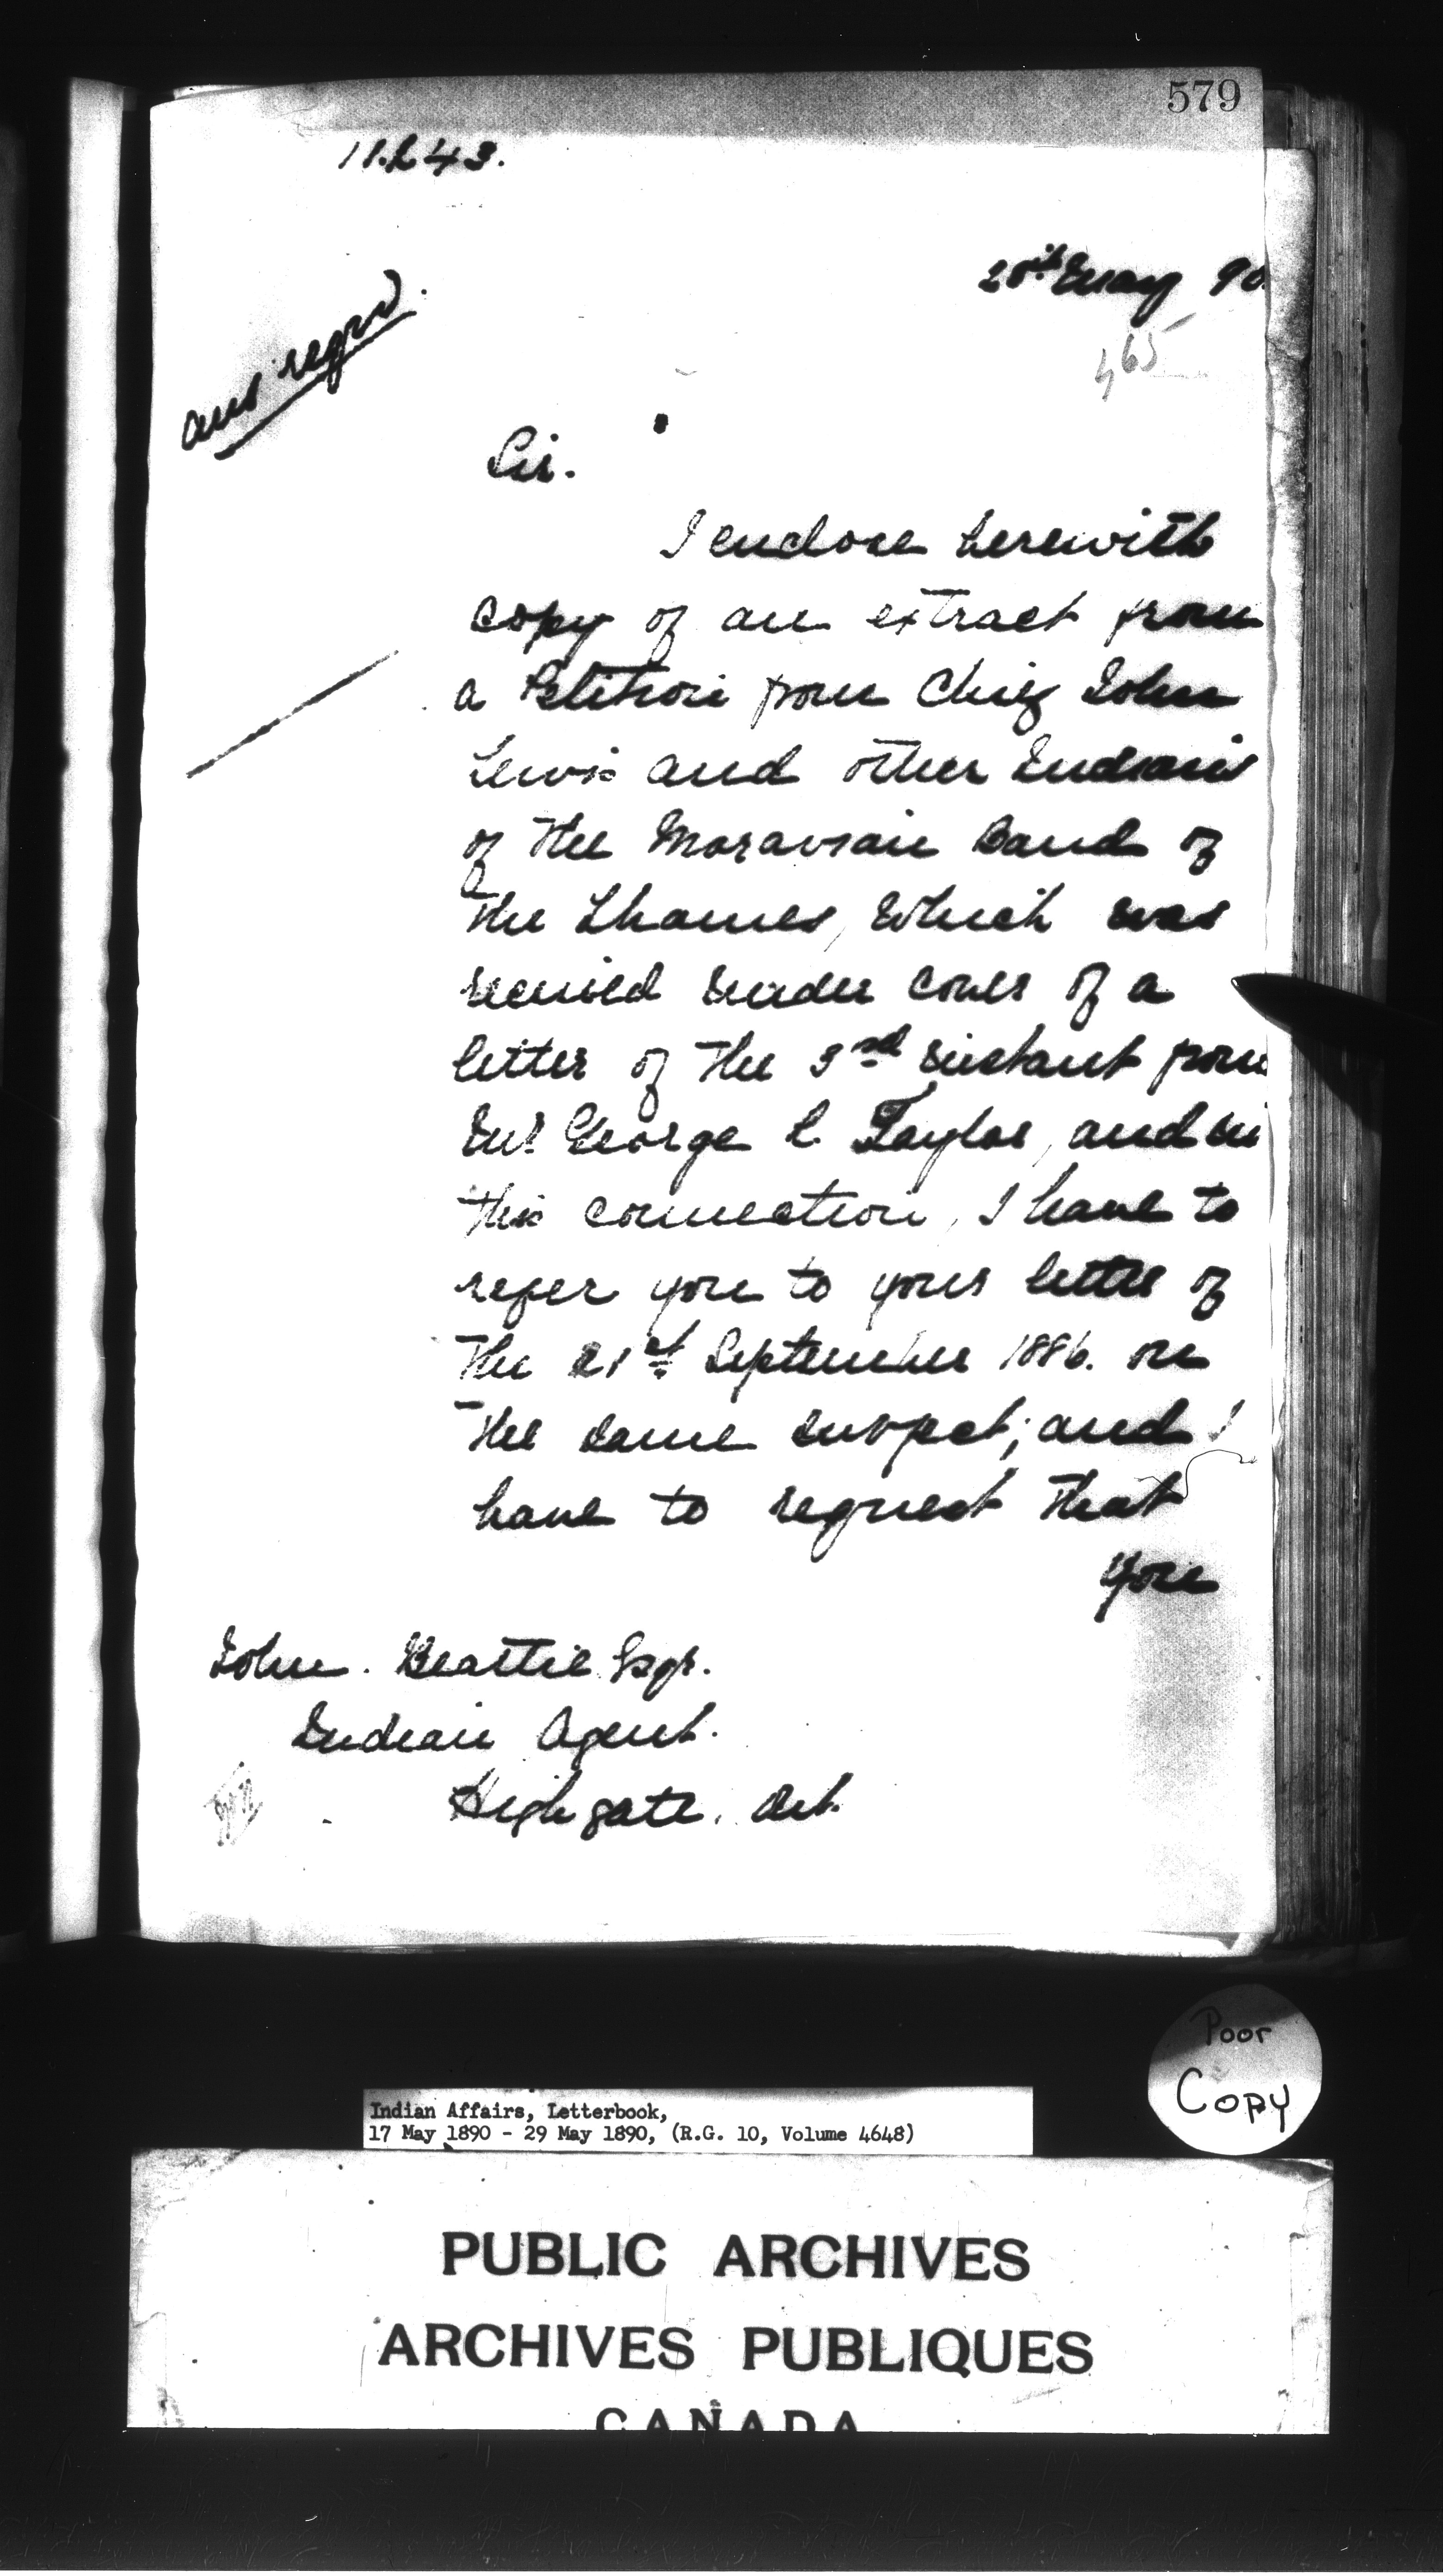 579
28th May 90.
465
ans' reqrd.
Sir.
I enclose herewith
copy of an extract from
a Petition from Chief John
Lewis and other Indians
of the Moravian Band of
the Thames, which was
received under cover of a
letter of the 3rd instant from
Mr. George C. Taylor, and in
this connection, I have to
refer you to your letter of
the 21st September 1886. on
the same subject; and I
have to request that
you
John. Beattie Esqr.
Indian Agent.
Highgate. Ont.
Poor
Copy
Indian Affairs, Letterbook,
17 May 1890 - 29 May 1890, (R.G. 10, Volume 4648)
PUBLIC ARCHIVES
ARCHIVES PUBLIQUES
CANADA